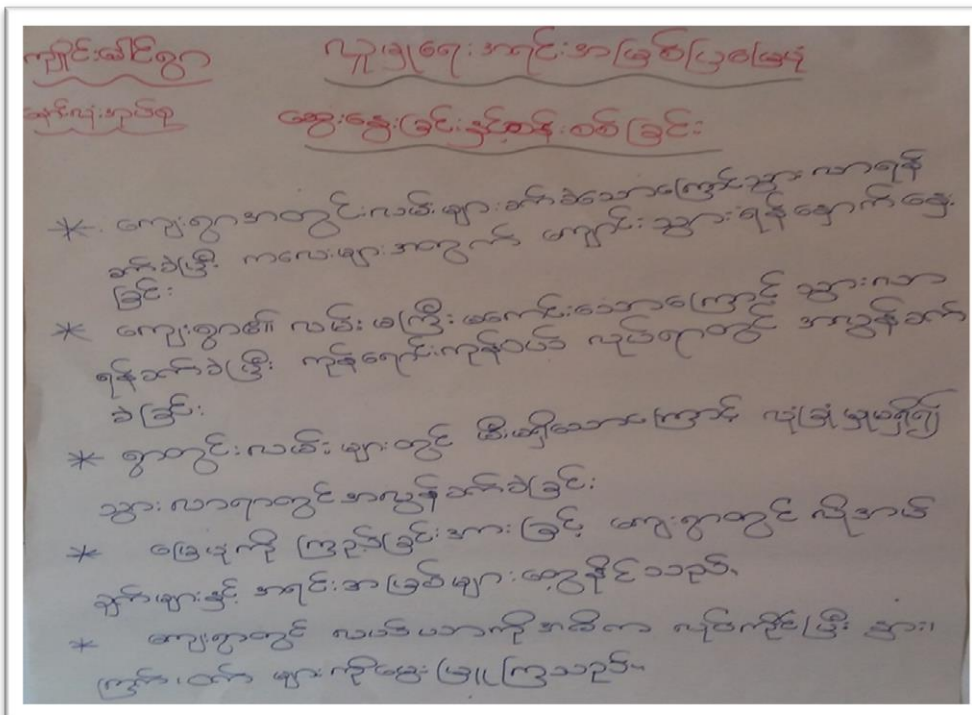 ကျိုင်းခေါင်ရွာ လူမှုရေးအရင်းအမြစ်ပြမြေပုံ
ဆန်လုံးအုပ်စု ဆွေးနွေးခြင်းနှင့်စိန်းစစ်ခြင်း
* ကျေးရွာအတွင်းလမ်းများခက်ခဲသောကြောင့်သွားလာရန်
ခက်ခဲပြီး ကလေးများအတွက် ကျောင်းသွားရန်နှောက်နှေး
ခြင်း
* ကျေးရွာ၏ လမ်းမကြီးမကောင်းသောကြောင့် သွားလာ
ရန်ခက်ခဲပြီး ကုန်ရောင်းကုန်ဝယ် လုပ်ရာတွင် အလွန်ခက်
ခဲခြင်း
* ရွာတွင်းလမ်းများတွင် မီးမရှိသောကြောင့် လုံခြုံမှုမရှိ၍
သွားလာရာတွင်အလွန်ခက်ခဲခြင်း
* မြေပုံကို ကြည့်ခြင်းအားဖြင့် ကျေးရွာတွင် လိုအပ်
ချက်များနှင့် အရင်းအမြစ်များတွေ့နိုင်သည်။
* ကျေးရွာတွင် လယ်ယာကိုအဓိက လုပ်ကိုင်ပြီး နွား၊
ကြက်၊ ဝက် များကိုမွေးမြူကြသည်။